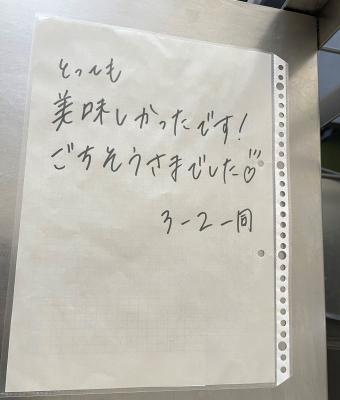 とっても
美味しかったです!
ごちそうさまでした♡
3-2 一同